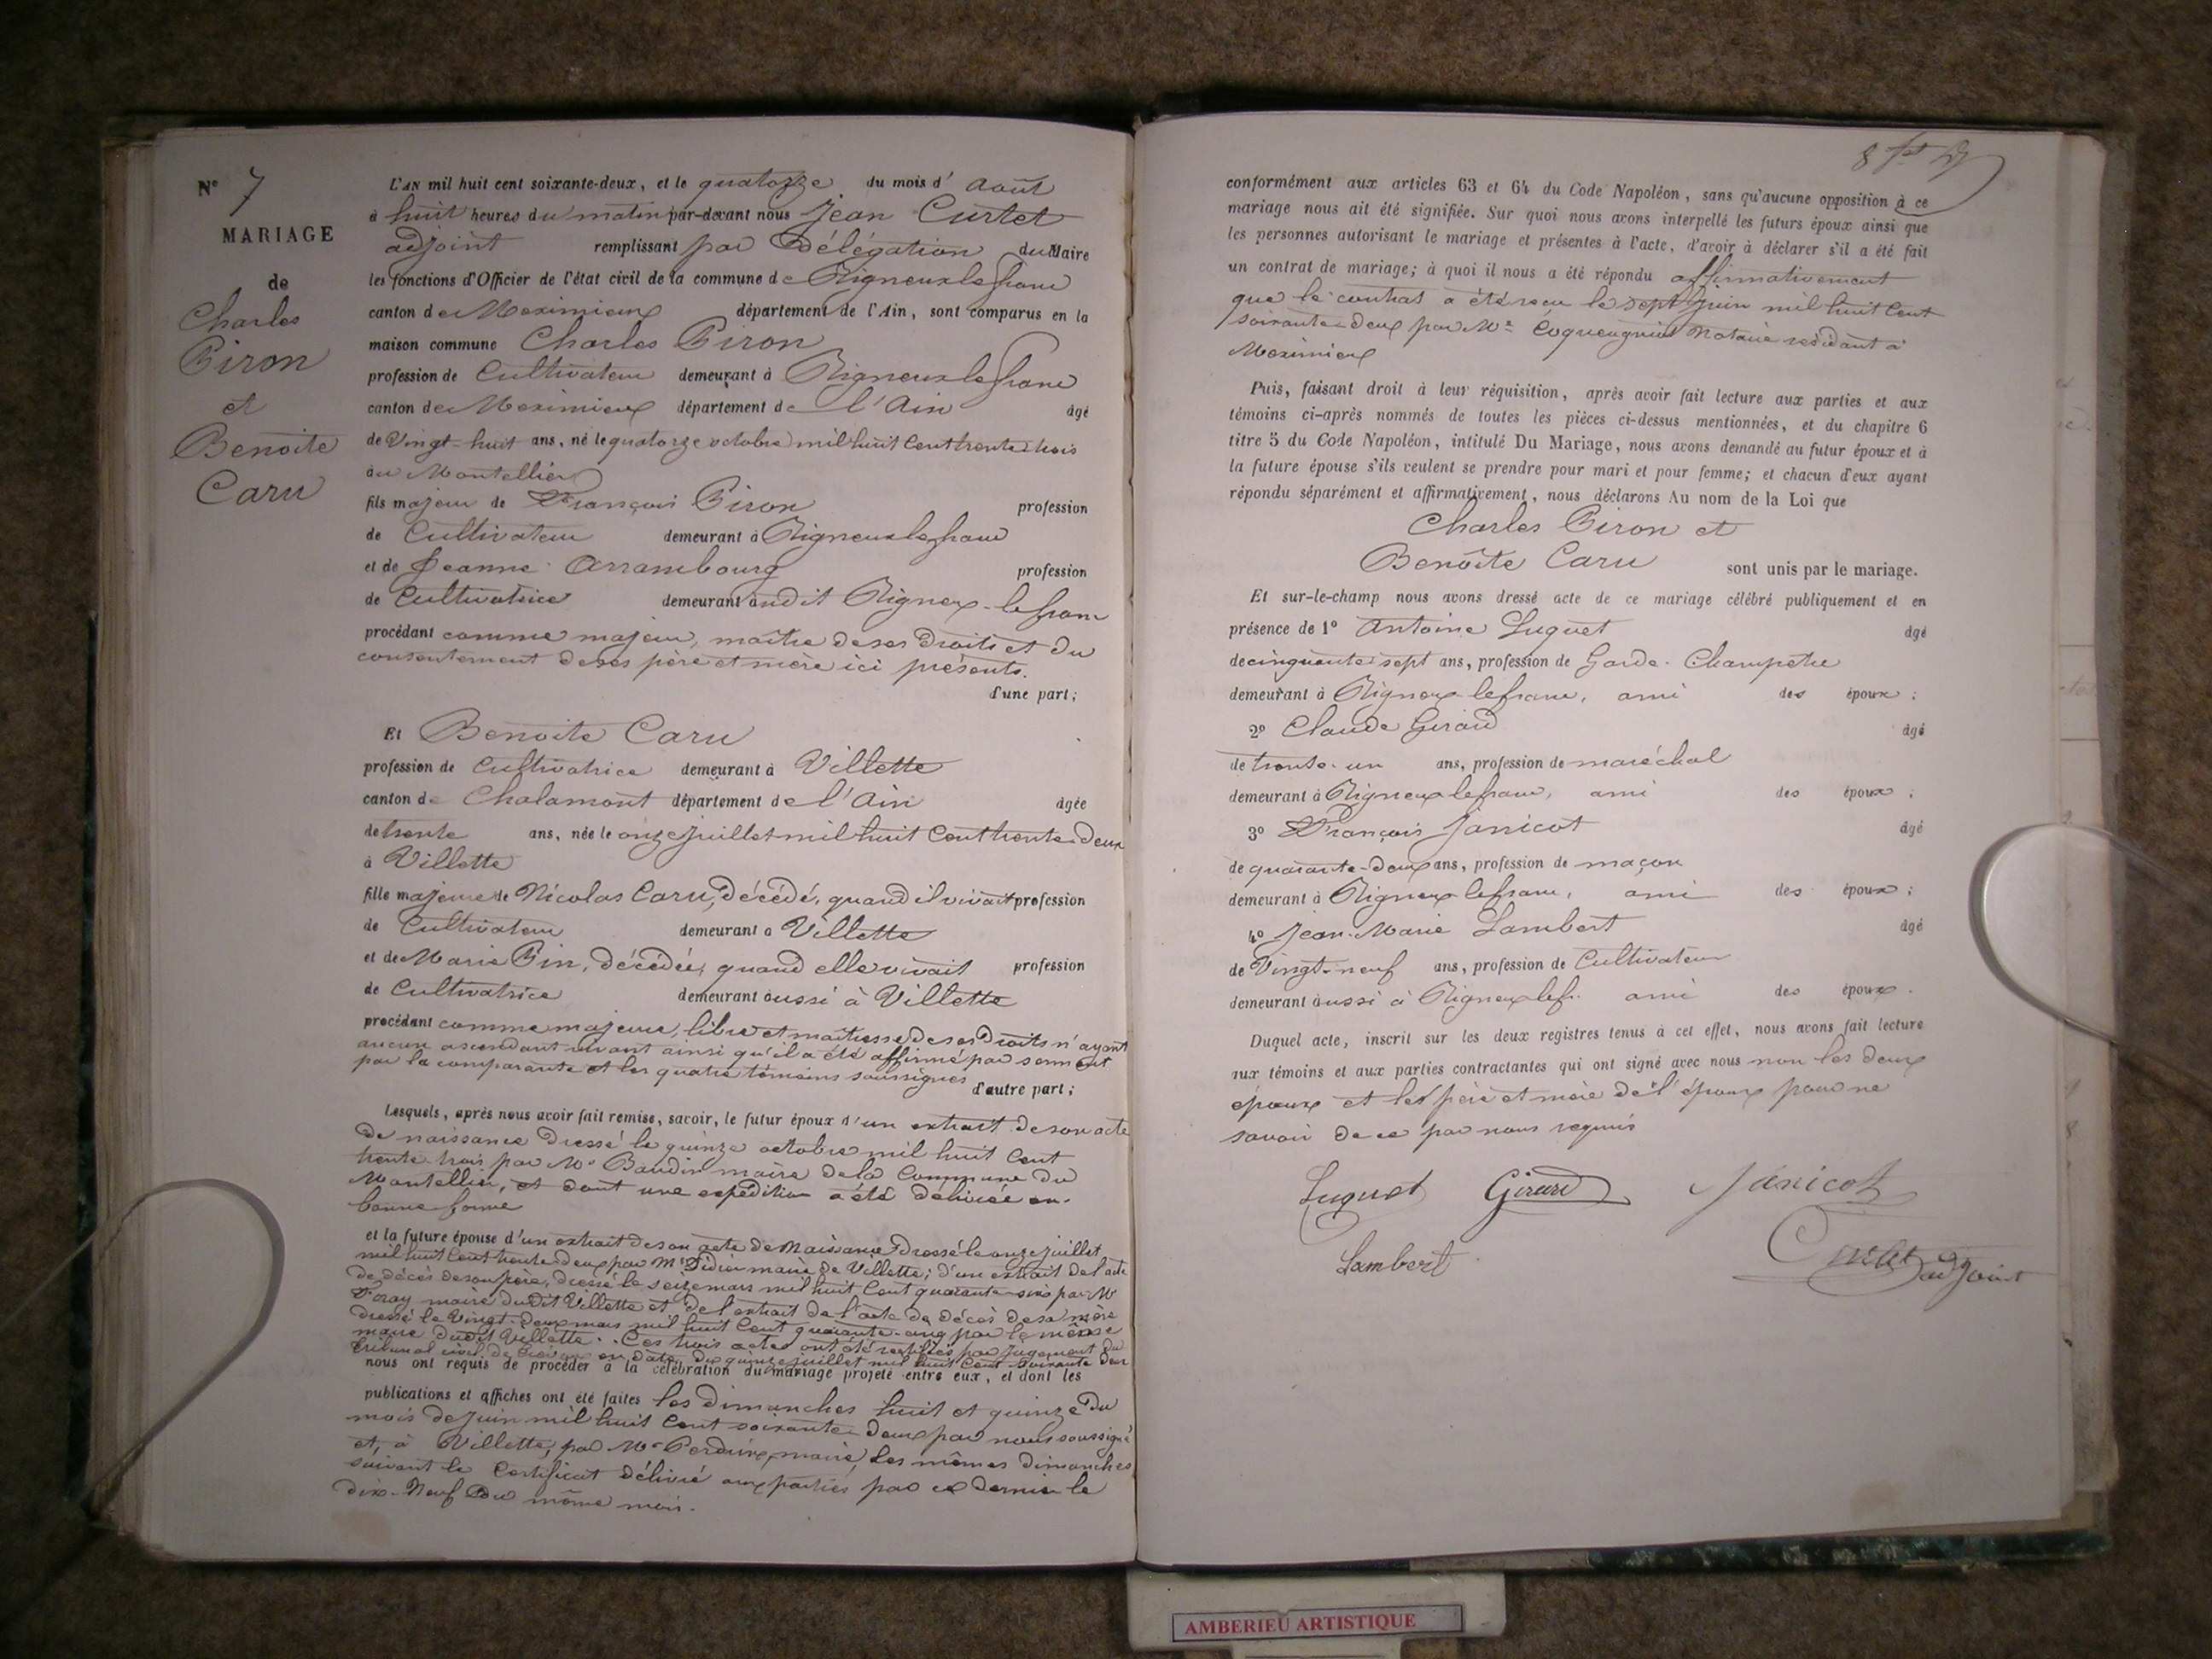 N° 7
MARIAGE
de
Charles
Piron
et
Benoite
Caru
L'AN mil huit cent soixante-deux, et le quatorze du mois d' Août
à huit heures du matin par-devant nous Jean Curtet
adjoint remplissant par Délégation du Maire
les fonctions d'Officier de l'état civil de la commune de Rigneux le franc
canton de Meximieux département de l'Ain, sont comparus en la
maison commune Charles Piron
profession de Cultivateur demeurant à Rigneux le franc
canton de Meximieux département de l'Ain âgé
de Vingt-huit ans, né le quatorze octobre mil huit Cent trente-trois
au Montellier
fils majeur de François Piron profession
de Cultivateur demeurant à Rigneux le franc
et de Jeanne Arrambourg profession
de Cultivatrice demeurant audit Rigneux-le franc
procédant comme majeur, maître de ses Droits et du
consentement de ses père et mère ici présents.
d'une part;
Et Benoite Caru
profession de Cultivatrice demeurant à Villette
canton de Chalamont département de l'Ain âgée
de trente ans, née le onze juillet mil huit Cent trente-deux
à Villette
fille majeure de Nicolas Caru, décédé, quand il vivait profession
de Cultivateur demeurant à Villette
et de Marie Pin, décédée, quand elle vivait profession
de Cultivatrice demeurant aussi à Villette
procédant comme majeure, libre et maîtresse de ses Droits n'ayant
aucun ascendant vivant ainsi qu'il a été affirmé par serment
par la comparante et les quatre témoins soussignés d'autre part;
Lesquels, après nous avoir fait remise, savoir, le futur époux d'un extrait de son acte
de naissance Dressé le quinze octobre mil huit Cent
trente-trois par Mr Baudin maire de la Commune du
Montellier, et dont une expédition a été délivrée en
bonne forme
et la future épouse d'un extrait de son acte de Naissance Dressé le onze juillet
mil huit Cent trente-deux par Mr Didier maire de Villette; d'un extrait de l'acte
de décès de son père, dressé le seize mars mil huit Cent quarante-six par Mr
maire dudit Villette et de l'extrait de l'acte de décès de sa mère
dressé le Vingt-deux mars mil huit Cent quarante-cinq par le même
maire dudit Villette. Ces trois actes ont été rectifiés par Jugement du
Tribunal civil de Trévoux en date du quinze juillet mil huit Cent soixante deux
nous ont requis de procéder à la célébration du mariage projeté entre eux, et dont les
publications et affiches ont été faites les dimanches huit et quinze du
mois de Juin mil huit Cent soixante-deux par nous soussigné
et, à Villette, par Mr maire, les mêmes dimanches
suivant le Certificat délivré aux parties par ce dernier le
dix-Neuf du même mois.
conformément aux articles 63 et 64 du Code Napoléon, sans qu'aucune opposition à ce
mariage nous ait été signifiée. Sur quoi nous avons interpellé les futurs époux ainsi que
les personnes autorisant le mariage et présentes à l'acte, d'avoir à déclarer s'il a été fait
un contrat de mariage; à quoi il nous a été répondu affirmativement
que le contrat a été reçu le sept Juin mil huit Cent
soixante-deux par Me Notaire résidant à
Meximieux
Puis, faisant droit à leur réquisition, après avoir fait lecture aux parties et aux
témoins ci-après nommés de toutes les pièces ci-dessus mentionnées, et du chapitre 6
titre 5 du Code Napoléon, intitulé Du Mariage, nous avons demandé au futur époux et à
la future épouse s'ils veulent se prendre pour mari et pour femme; et chacun d'eux ayant
répondu séparément et affirmativement, nous déclarons Au nom de la Loi que
Charles Piron et
Benoîte Caru sont unis par le mariage.
Et sur-le-champ nous avons dressé acte de ce mariage célébré publiquement et en
présence de 1° Antoine Luquet âgé
de cinquante-sept ans, profession de Garde-Champetre
demeurant à Rigneux le franc, ami des époux;
2° Claude Girard âgé
de trente-un ans, profession de maréchal
demeurant à Rigneux le franc, ami des époux;
3° François Janicot âgé
de quarante-deux ans, profession de maçon
demeurant à Rigneux le franc, ami des époux;
4° Jean-Marie Lambert âgé
de Vingt-neuf ans, profession de Cultivateur
demeurant aussi à Rigneux le fr. ami des époux.
Duquel acte, inscrit sur les deux registres tenus à cet effet, nous avons fait lecture
aux témoins et aux parties contractantes qui ont signé avec nous non les deux
époux et les père et mère de l'époux pour ne
savoir de ce par nous requis
Luquet Girard Janicot
Lambert Curtet adjoint
AMBERIEU ARTISTIQUE